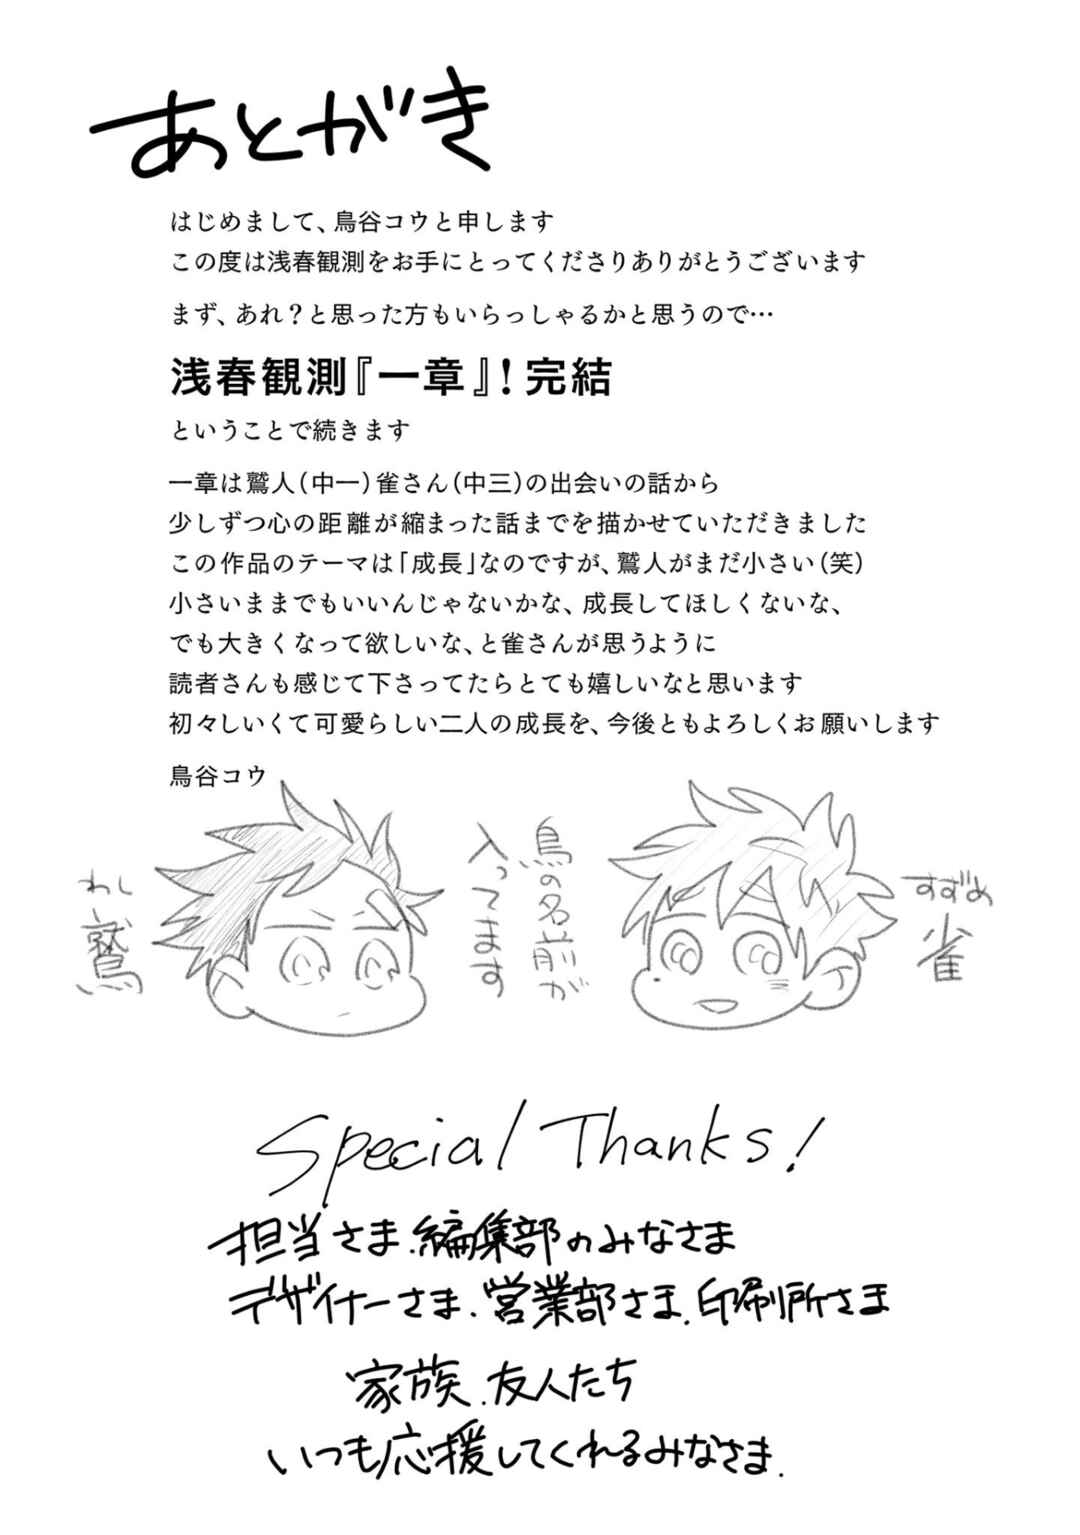 あとがき
はじめまして、鳥谷コウと申します
この度は浅春観測をお手にとってくださりありがとうございます
まず、あれ？と思った方もいらっしゃるかと思うので…
浅春観測『一章』！完結
ということで続きます
一章は鷲人（中一）雀さん（中三）の出会いの話から
少しずつ心の距離が縮まった話までを描かせていただきました
この作品のテーマは「成長」なのですが、鷲人がまだ小さい（笑）
小さいままでもいいんじゃないかな、成長してほしくないな、
でも大きくなって欲しいな、と雀さんが思うように
読者さんも感じて下さってたらとても嬉しいなと思います
初々しいくて可愛らしい二人の成長を、今後ともよろしくお願いします
鳥谷コウ
わし
鷲
鳥の名前が
入ってます
すずめ
雀
Special Thanks!
担当さま.編集部のみなさま
デザイナーさま.営業部さま.印刷所さま
家族.友人たち
いつも応援してくれるみなさま.